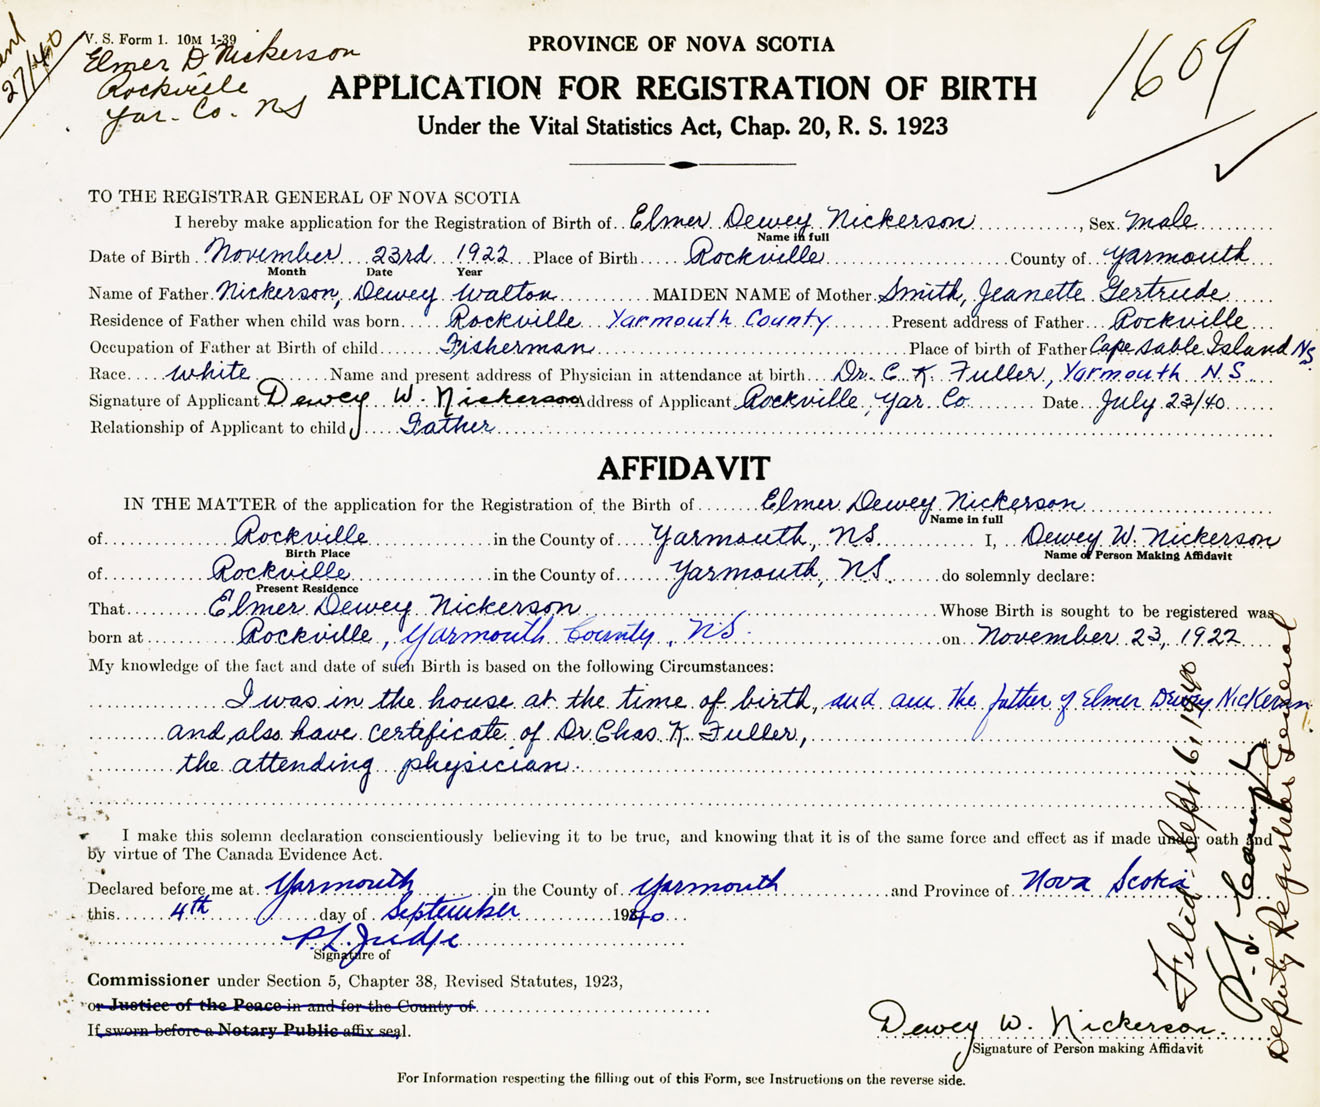 27/40
V. S. Form 1. 10M 1-39
Elmer D Nickerson
Rockville
Yar. Co. NS
PROVINCE OF NOVA SCOTIA
APPLICATION FOR REGISTRATION OF BIRTH
Under the Vital Statistics Act, Chap. 20, R. S. 1923
1609
TO THE REGISTRAR GENERAL OF NOVA SCOTIA
I hereby make application for the Registration of Birth of Elmer Dewey Nickerson, Sex male
Name in full
Date of Birth November 23rd 1922 Place of Birth Rockville County of Yarmouth
Month Date Year
Name of Father Nickerson, Dewey Walton MAIDEN NAME of Mother Smith, Jeanette Gertrude
Residence of Father when child was born Rockville Yarmouth County Present address of Father Rockville
Occupation of Father at Birth of child Fisherman Place of birth of Father Cape Sable Island NS.
Race white Name and present address of Physician in attendance at birth Dr. C. K. Fuller, Yarmouth N.S.
Signature of Applicant Dewey W. Nickerson Address of Applicant Rockville Yar. Co. Date July 23/40
Relationship of Applicant to child Father
AFFIDAVIT
IN THE MATTER of the application for the Registration of the Birth of Elmer Dewey Nickerson
Name in full
of Rockville in the County of Yarmouth, NS I, Dewey W. Nickerson
Birth Place Name of Person Making Affidavit
of Rockville in the County of Yarmouth, NS. do solemnly declare:
Present Residence
That Elmer Dewey Nickerson Whose Birth is sought to be registered was
born at Rockville, Yarmouth County, NS. on November 23, 1922
My knowledge of the fact and date of such Birth is based on the following Circumstances:
I was in the house at the time of birth, and am the father of Elmer Dewey Nickerson
and also have certificate of Dr. Chas. K. Fuller,
the attending physician.
I make this solemn declaration conscientiously believing it to be true, and knowing that it is of the same force and effect as if made under oath and
by virtue of The Canada Evidence Act.
Declared before me at Yarmouth in the County of Yarmouth and Province of Nova Scotia
this 4th day of September 1940
P. L. Judge
Signature of
Commissioner under Section 5, Chapter 38, Revised Statutes, 1923,
or Justice of the Peace in and for the County of
If sworn before a Notary Public affix seal.
Dewey W. Nickerson.
Signature of Person making Affidavit
For Information respecting the filling out of this Form, see Instructions on the reverse side.
Filed Sept. 6, 1940
Deputy Registrar General